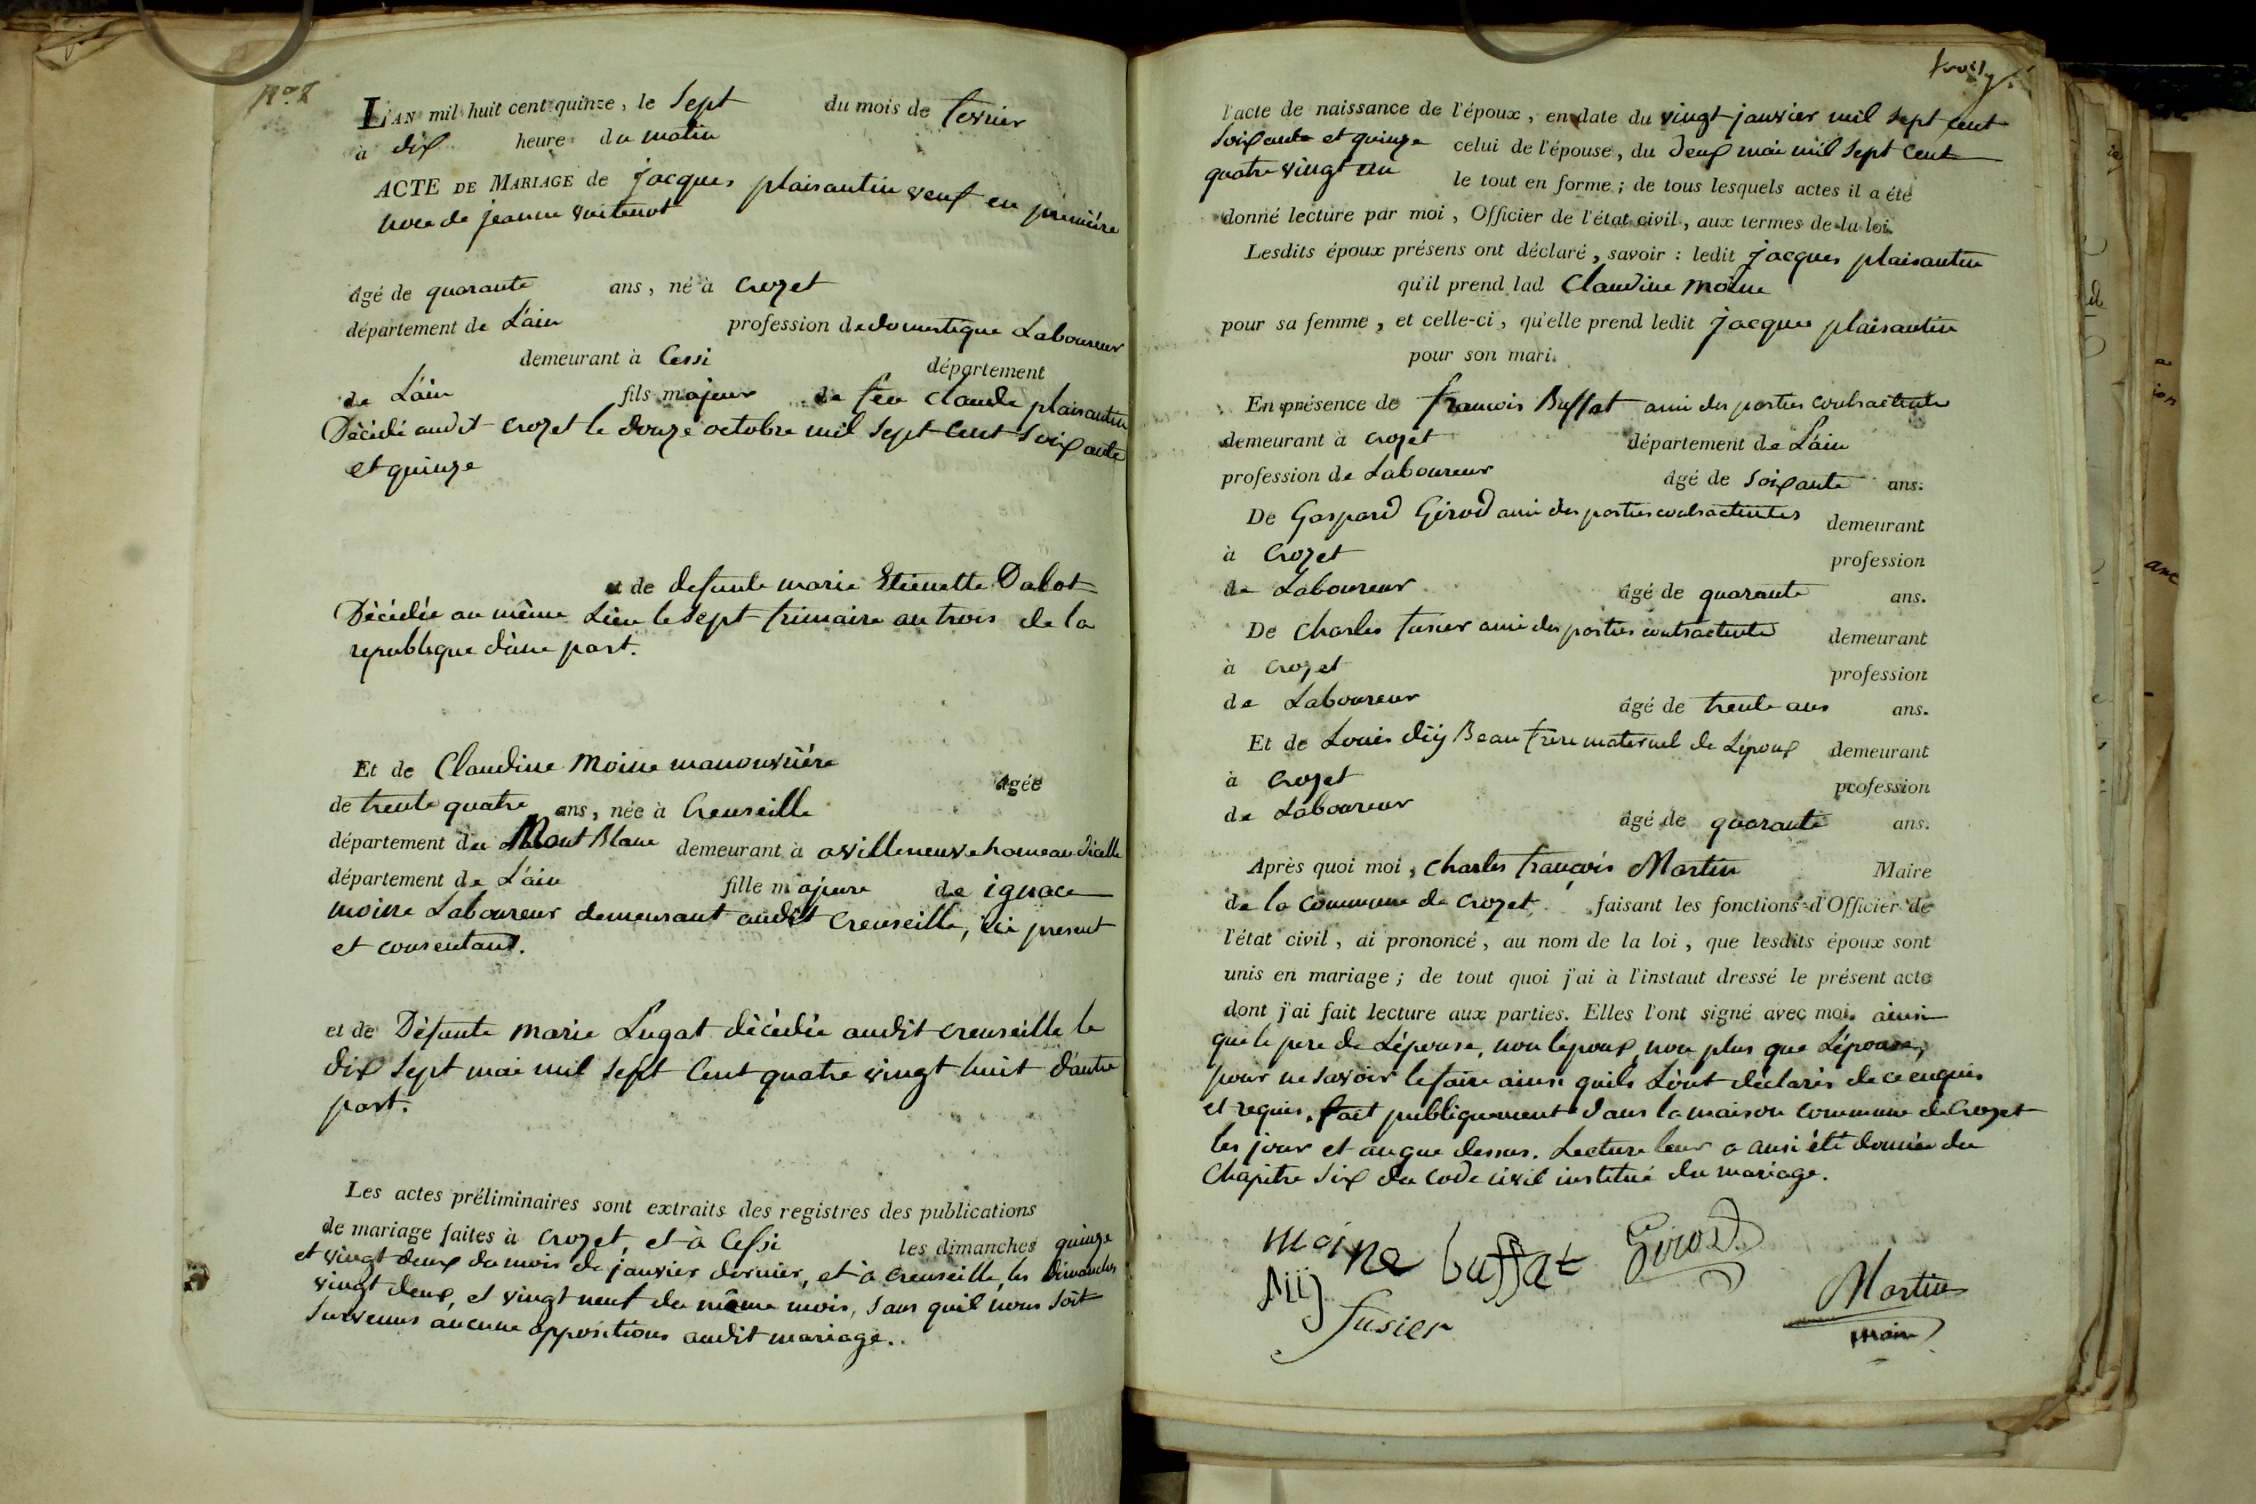 No 2
L'AN mil huit cent quinze, le sept du mois de fevrier
à dix heure du matin
ACTE DE MARIAGE de jacques plaisantin veuf en premiére
noce de jeanne
âgé de quarante ans, né à crozet
département de L'ain profession de domestique Laboureur
demeurant à Cessi département
de L'ain fils majeur de feu claude plaisantin
Décédé audit crozet le douze octobre mil sept cent soixante
et quinze
et de defunte marie Etienette Dalot
Décédée au même Lieu le sept frimaire an trois de la
republique d'une part.
Et de Claudine Moine manouvriére âgée
de trente quatre ans, née à Creuseille
département du Mont Blanc demeurant à a villeneuve hameau d'icelle
département de L'ain fille majeure de ignace
moine Laboureur demeurant audit creuseille, ici present
et consentant.
et de Défunte marie Lugat décédée audit creuseille le
dix sept mai mil sept cent quatre vingt huit d'autre
part.
Les actes préliminaires sont extraits des registres des publications
de mariage faites à crozet, et à Cessi les dimanches quinze
et vingt deux du mois de janvier dernier, et à creuseille, les dimanches
vingt deux, et vingt neuf du même mois, sans quil nous soit
survenus aucune oppositions audit mariage.
l'acte de naissance de l'époux, en date du vingt janvier mil sept cent
soixante et quinze celui de l'épouse, du deux mai mil sept cent
quatre vingt un le tout en forme; de tous lesquels actes il a été
donné lecture par moi, Officier de l'état civil, aux termes de la loi.
Lesdits époux présens ont déclaré, savoir: ledit jacques plaisantin
qu'il prend lad Claudine moine
pour sa femme, et celle-ci, qu'elle prend ledit jacques plaisantin
pour son mari.
En présence de francois Buffat ami des parties contractente
demeurant à crozet département de L'ain
profession de Laboureur âgé de soixante ans.
De Gaspard Girod ami des parties contractentes demeurant
à crozet profession
de Laboureur âgé de quarante ans.
De charles fusier ami des parties contractente demeurant
à crozet profession
de Laboureur âgé de trente ans ans.
Et de Louis diij Beau frere maternel de L'époux demeurant
à crozet profession
de Laboureur âgé de quarante ans.
Après quoi moi, charles françois Martin Maire
de la commune de crozet, faisant les fonctions d'Officier de
l'état civil, ai prononcé, au nom de la loi, que lesdits époux sont
unis en mariage; de tout quoi j'ai à l'instant dressé le présent acte
dont j'ai fait lecture aux parties. Elles l'ont signé avec moi. ainsi
que le pere de L'épouse, non l'epoux, non plus que L'épouse,
pour ne savoir le faire ainsi quils L'ont déclarés de ce enquis
et requis. fait publiquement dans la maison commune de Crozet
les jour et an que dessus. Lecture leur a ausi été donnée du
Chapitre six du code civil institué du mariage.
moine buffat Girod
diij
fusier
Martin
maire